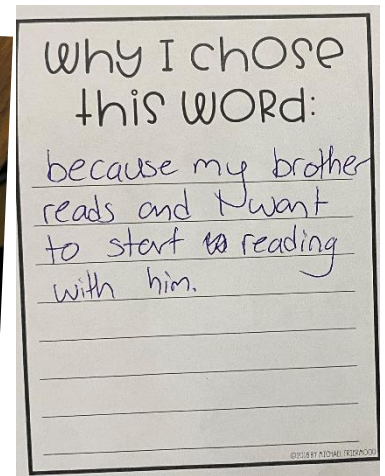 Why I chose
this word:
because my brother
reads and I want
to start reading
with him.
©2018 BY MICHAEL FRIERMOOD